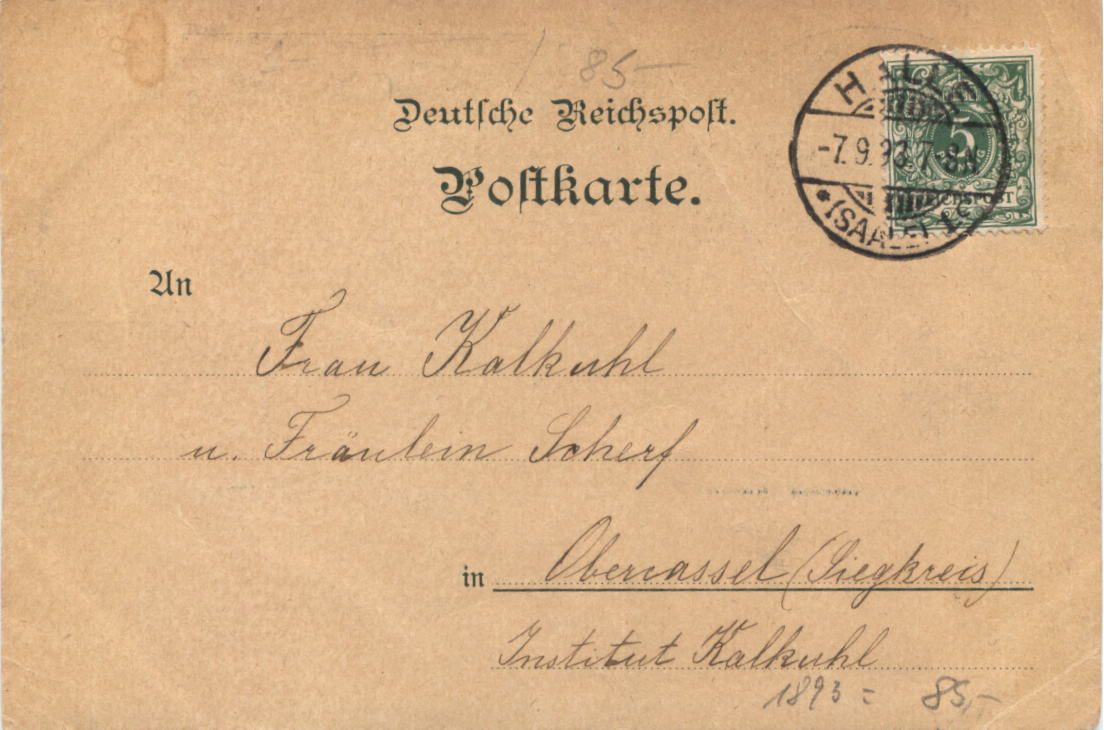 85-
Deutsche Reichspost.
Postkarte.
HALLE
-7.9.93.7-8N
*(SAALE) 1c
5
REICHSPOST
An
Frau Kalkuhl
u. Fräulein Scherf
in Obercassel (Siegkreis)
Institut Kalkuhl
1893 = 85,-